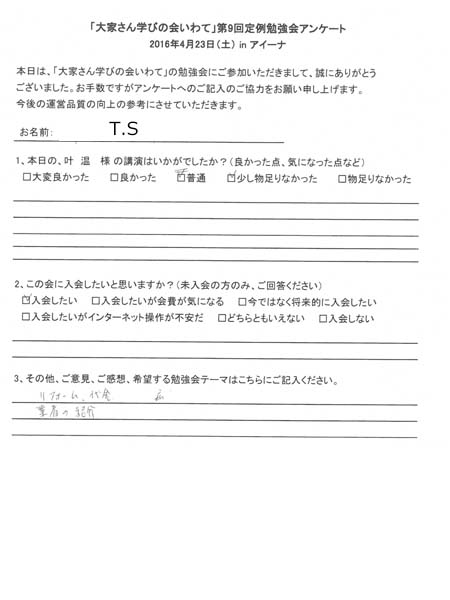 「大家さん学びの会いわて」第9回定例勉強会アンケート
2016年4月23日(土) in アイーナ
本日は、「大家さん学びの会いわて」の勉強会にご参加いただきまして、誠にありがとう
ございました。お手数ですがアンケートへのご記入のご協力をお願い申し上げます。
今後の運営品質の向上の参考にさせていただきます。
お名前: T.S
1、本日の、叶 温 様 の講演はいかがでしたか?(良かった点、気になった点など)
□大変良かった □良かった ☑普通 ☑少し物足りなかった □物足りなかった
2、この会に入会したいと思いますか?(未入会の方のみ、ご回答ください)
☑入会したい □入会したいが会費が気になる □今ではなく将来的に入会したい
□入会したいがインターネット操作が不安だ □どちらともいえない □入会しない
3、その他、ご意見、ご感想、希望する勉強会テーマはこちらにご記入ください。
リフォーム、代金
業者の紹介